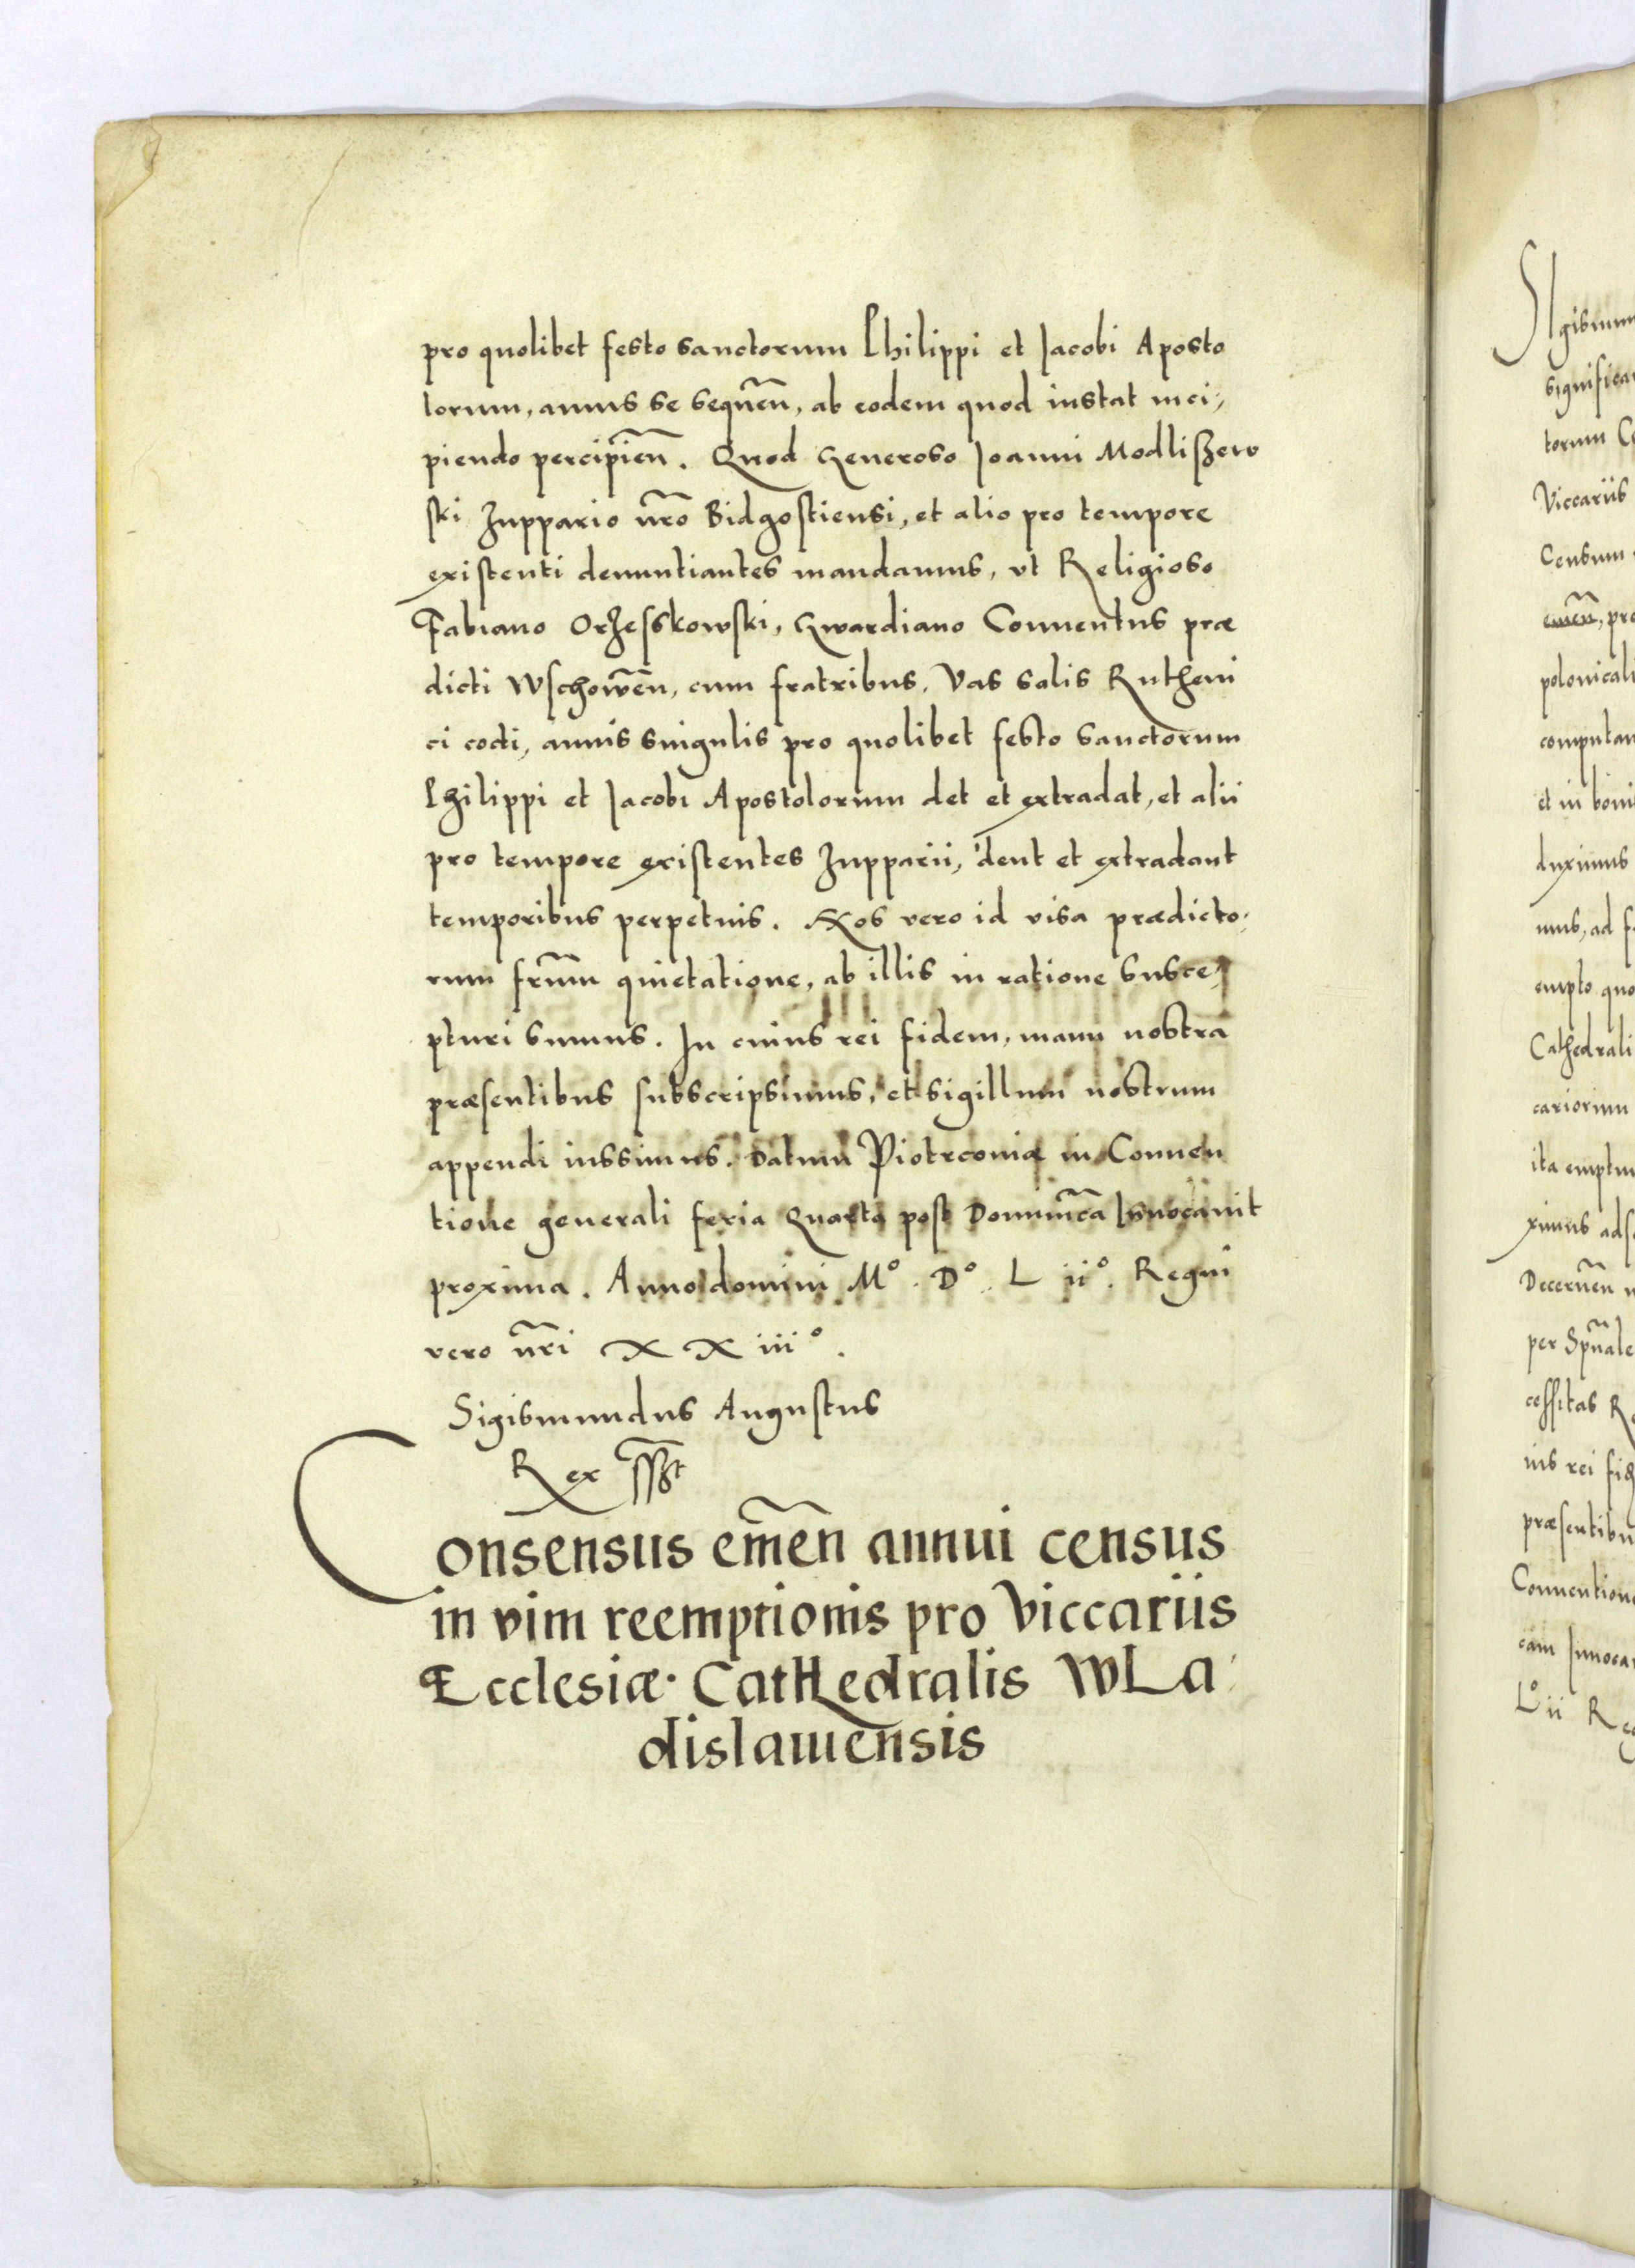 pro quolibet festo sanctorum Philippi et Jacobi Aposto
lorum, annis se sequen̄, ab eodem quod instat inci,
piendo percipien̄. Quod Generoso Joanni Modlißew
ski Zuppario nr̄o Bidgostiensi, et alio pro tempore
existenti denuntiantes mandamus, vt Religioso
Fabiano Orzesskowski, Gwardiano Conuentus præ
dicti Wschowen̄, cum fratribus. Vas salis Rutheni
ci cocti, annis singulis pro quolibet festo sanctorum
Philippi et Jacobi Apostolorum det et extradat, et alii
pro tempore existentes Zupparii, dent et extradant
temporibus perpetuis. Nos vero id visa prædicto,
rum frm̄ quietatione, ab illis in ratione susce,
pturi sumus. In cuius rei fidem, manu nostra
præsentibus subscripsimus, et sigillum nostrum
appendi iussimus. Datum Piotrconiæ in Conuen
tione generali feria Quarta post Dominica̅ Inuocauit
proxima. Anno domini Mº. Dº. L iiº. Regni
vero nr̄i X X iiiº.
Sigismundus Augustus
Rex sszt
Consensus emēn annui census
in vim reemptionis pro Viccariis
Ecclesiæ Cathedralis WLa
dislauiensis
Sigismun
significa
torum C
Viccariis
Censum
emēn, pro
polonicali
computan
et in boni
duximus
mus, ad f
empto quo
Cathedrali
cariorum
ita emptu
ximus ads
Decernēn
per Spūale
cessitas R
ius rei fid
præsentibu
Conuention
cam Inuoca
Lº ii Re